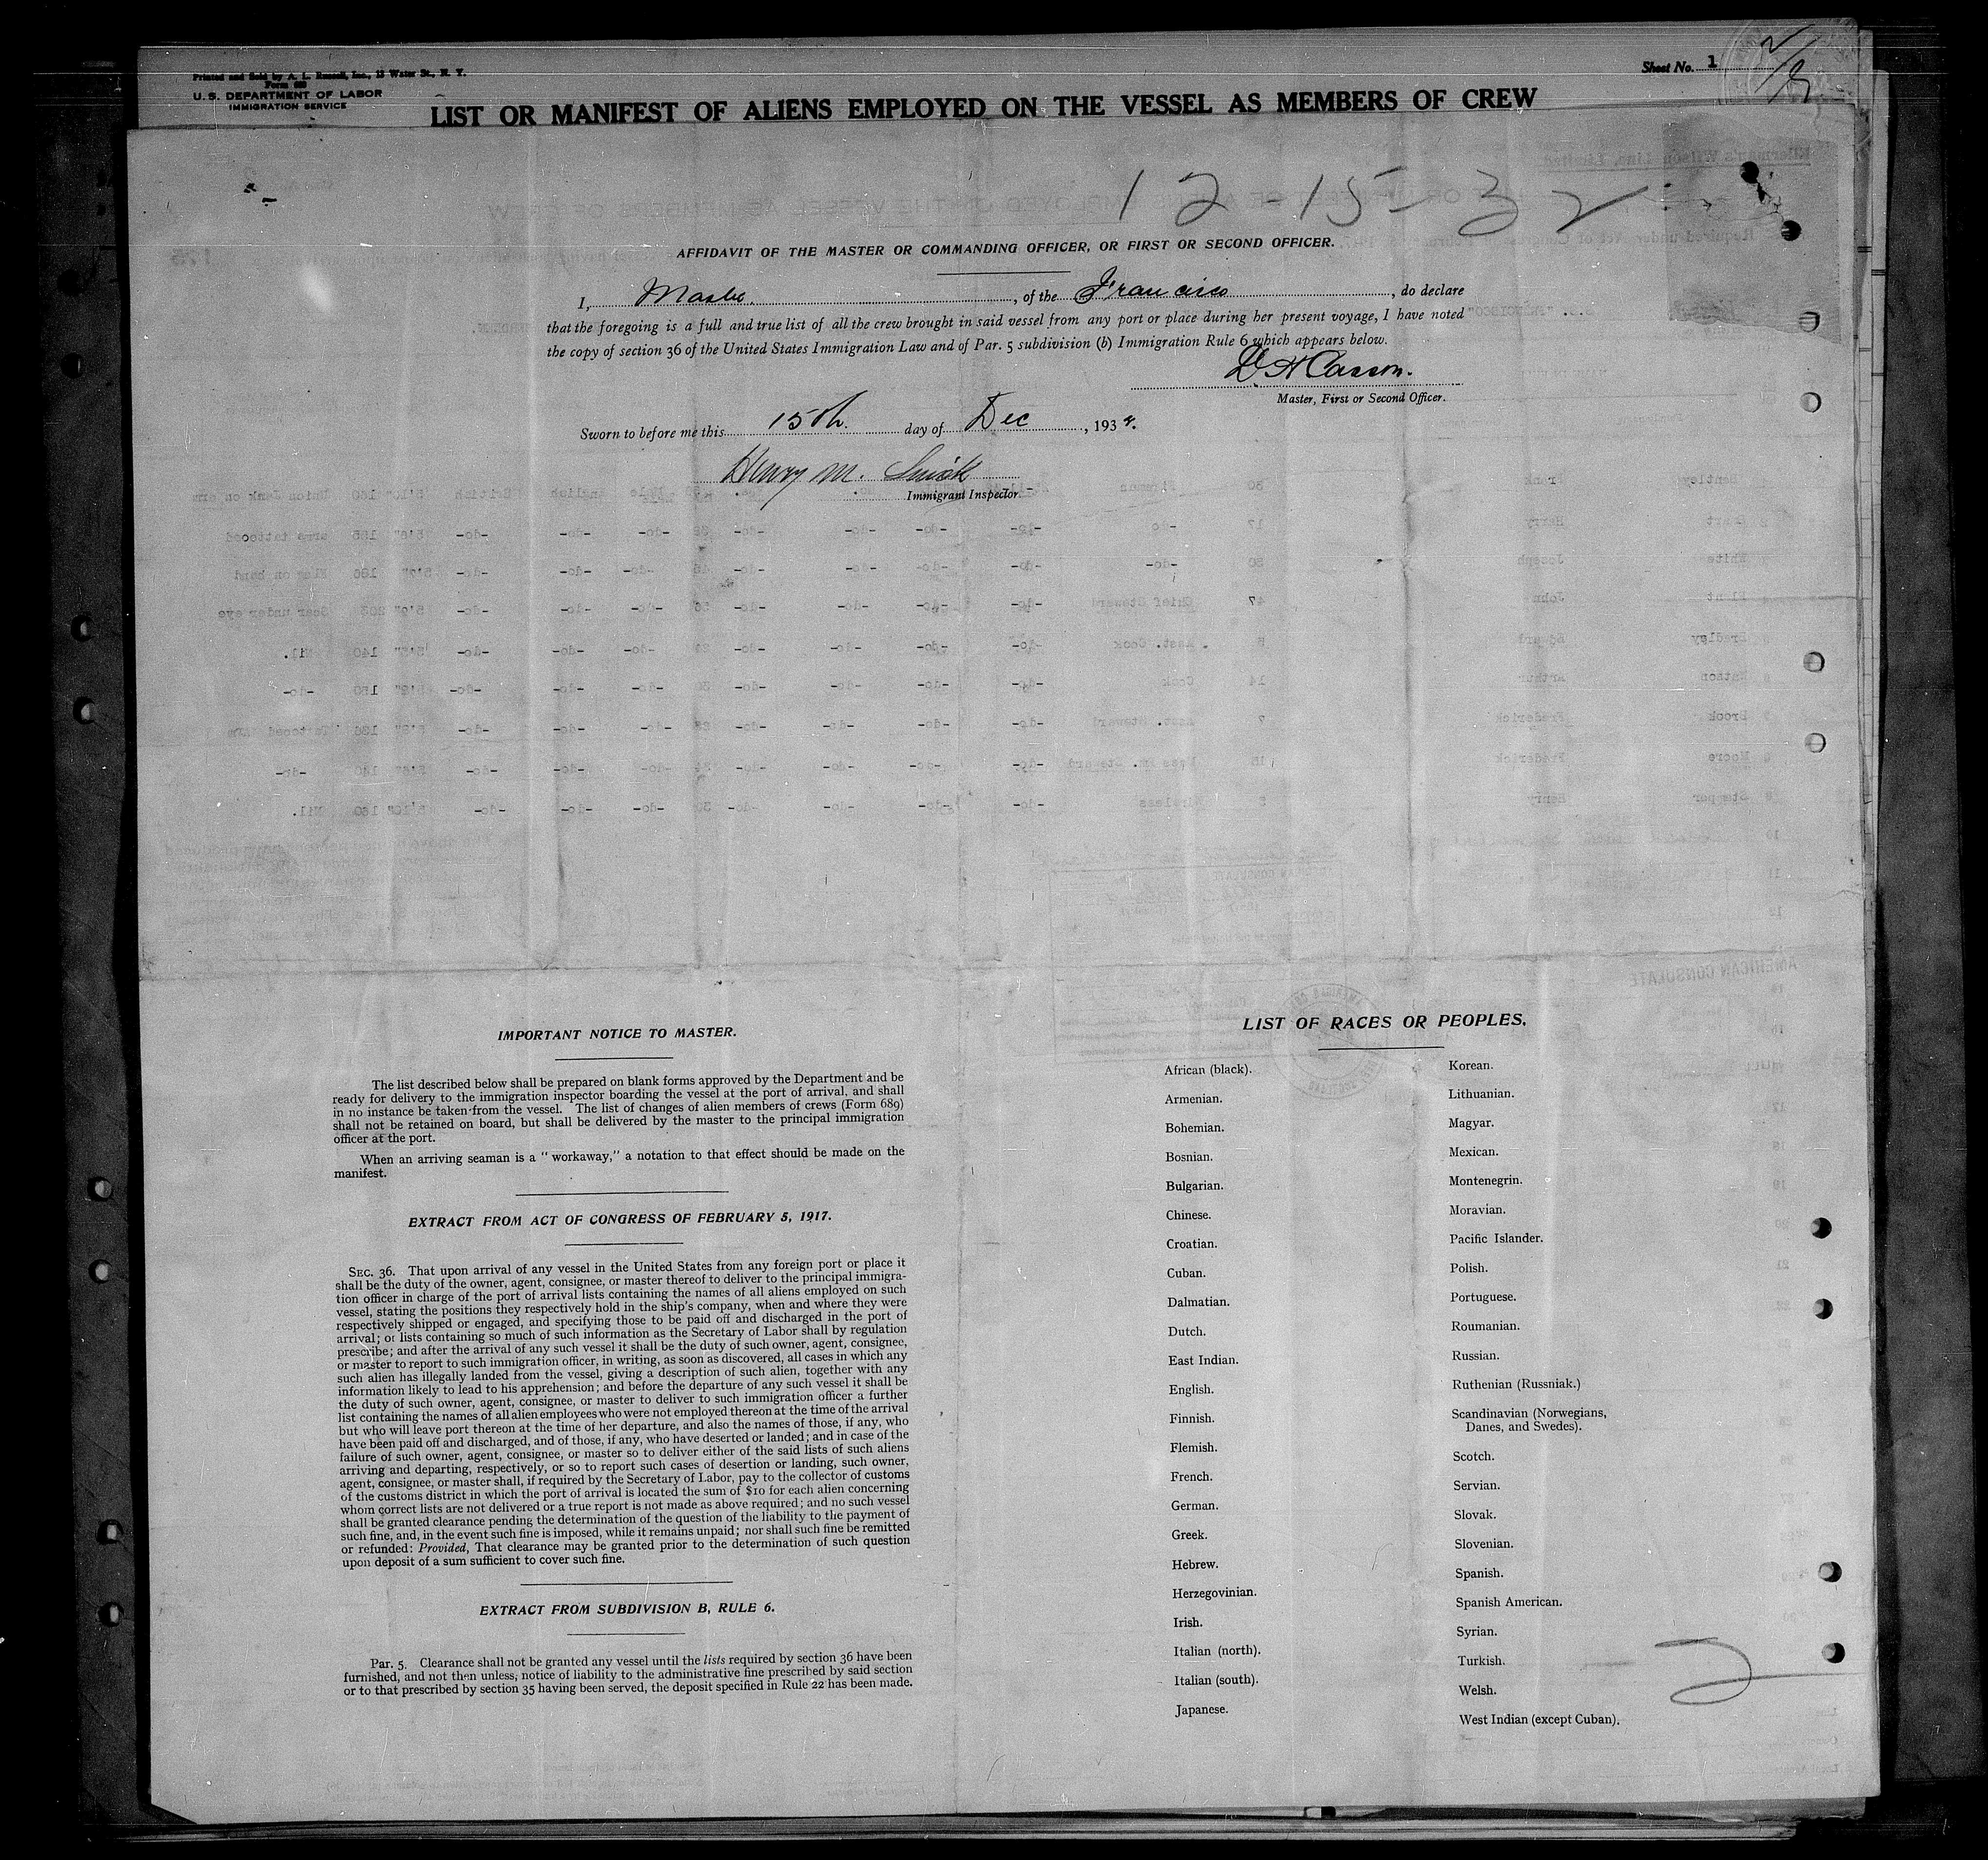 Printed and Sold by A. L. Russell, Inc., 13 Water St., N. Y.
Form 689
U. S. DEPARTMENT OF LABOR
IMMIGRATION SERVICE
Sheet No. 1
LIST OR MANIFEST OF ALIENS EMPLOYED ON THE VESSEL AS MEMBERS OF CREW
12-15-32
AFFIDAVIT OF THE MASTER OR COMMANDING OFFICER, OR FIRST OR SECOND OFFICER.
I, Master, of the Francisco, do declare
that the foregoing is a full and true list of all the crew brought in said vessel from any port or place during her present voyage, I have noted
the copy of section 36 of the United States Immigration Law and of Par. 5 subdivision (b) Immigration Rule 6 which appears below.
Master, First or Second Officer.
Sworn to before me this 15th day of Dec, 193
Henry M.
Immigrant Inspector
IMPORTANT NOTICE TO MASTER.
The list described below shall be prepared on blank forms approved by the Department and be
ready for delivery to the immigration inspector boarding the vessel at the port of arrival, and shall
in no instance be taken from the vessel. The list of changes of alien members of crews (Form 689)
shall not be retained on board, but shall be delivered by the master to the principal immigration
officer at the port.
When an arriving seaman is a "workaway," a notation to that effect should be made on the
manifest.
EXTRACT FROM ACT OF CONGRESS OF FEBRUARY 5, 1917.
SEC. 36. That upon arrival of any vessel in the United States from any foreign port or place it
shall be the duty of the owner, agent, consignee, or master thereof to deliver to the principal immigra-
tion officer in charge of the port of arrival lists containing the names of all aliens employed on such
vessel, stating the positions they respectively hold in the ship's company, when and where they were
respectively shipped or engaged, and specifying those to be paid off and discharged in the port of
arrival; or lists containing so much of such information as the Secretary of Labor shall by regulation
prescribe; and after the arrival of any such vessel it shall be the duty of such owner, agent, consignee,
or master to report to such immigration officer, in writing, as soon as discovered, all cases in which any
such alien has illegally landed from the vessel, giving a description of such alien, together with any
information likely to lead to his apprehension; and before the departure of any such vessel it shall be
the duty of such owner, agent, consignee, or master to deliver to such immigration officer a further
list containing the names of all alien employees who were not employed thereon at the time of the arrival
but who will leave port thereon at the time of her departure, and also the names of those, if any, who
have been paid off and discharged, and of those, if any, who have deserted or landed; and in case of the
failure of such owner, agent, consignee, or master so to deliver either of the said lists of such aliens
arriving and departing, respectively, or so to report such cases of desertion or landing, such owner,
agent, consignee, or master shall, if required by the Secretary of Labor, pay to the collector of customs
of the customs district in which the port of arrival is located the sum of $10 for each alien concerning
whom correct lists are not delivered or a true report is not made as above required; and no such vessel
shall be granted clearance pending the determination of the question of the liability to the payment of
such fine, and, in the event such fine is imposed, while it remains unpaid; nor shall such fine be remitted
or refunded: Provided, That clearance may be granted prior to the determination of such question
upon deposit of a sum sufficient to cover such fine.
EXTRACT FROM SUBDIVISION B, RULE 6.
Par. 5. Clearance shall not be granted any vessel until the lists required by section 36 have been
furnished, and not then unless, notice of liability to the administrative fine prescribed by said section
or to that prescribed by section 35 having been served, the deposit specified in Rule 22 has been made.
LIST OF RACES OR PEOPLES.
African (black).
Armenian.
Bohemian.
Bosnian.
Bulgarian.
Chinese.
Croatian.
Cuban.
Dalmatian.
Dutch.
East Indian.
English.
Finnish.
Flemish.
French.
German.
Greek.
Hebrew.
Herzegovinian.
Irish.
Italian (north).
Italian (south).
Japanese.
Korean.
Lithuanian.
Magyar.
Mexican.
Montenegrin.
Moravian.
Pacific Islander.
Polish.
Portuguese.
Roumanian.
Russian.
Ruthenian (Russniak.)
Scandinavian (Norwegians,
Danes, and Swedes).
Scotch.
Servian.
Slovak.
Slovenian.
Spanish.
Spanish American.
Syrian.
Turkish.
Welsh.
West Indian (except Cuban).